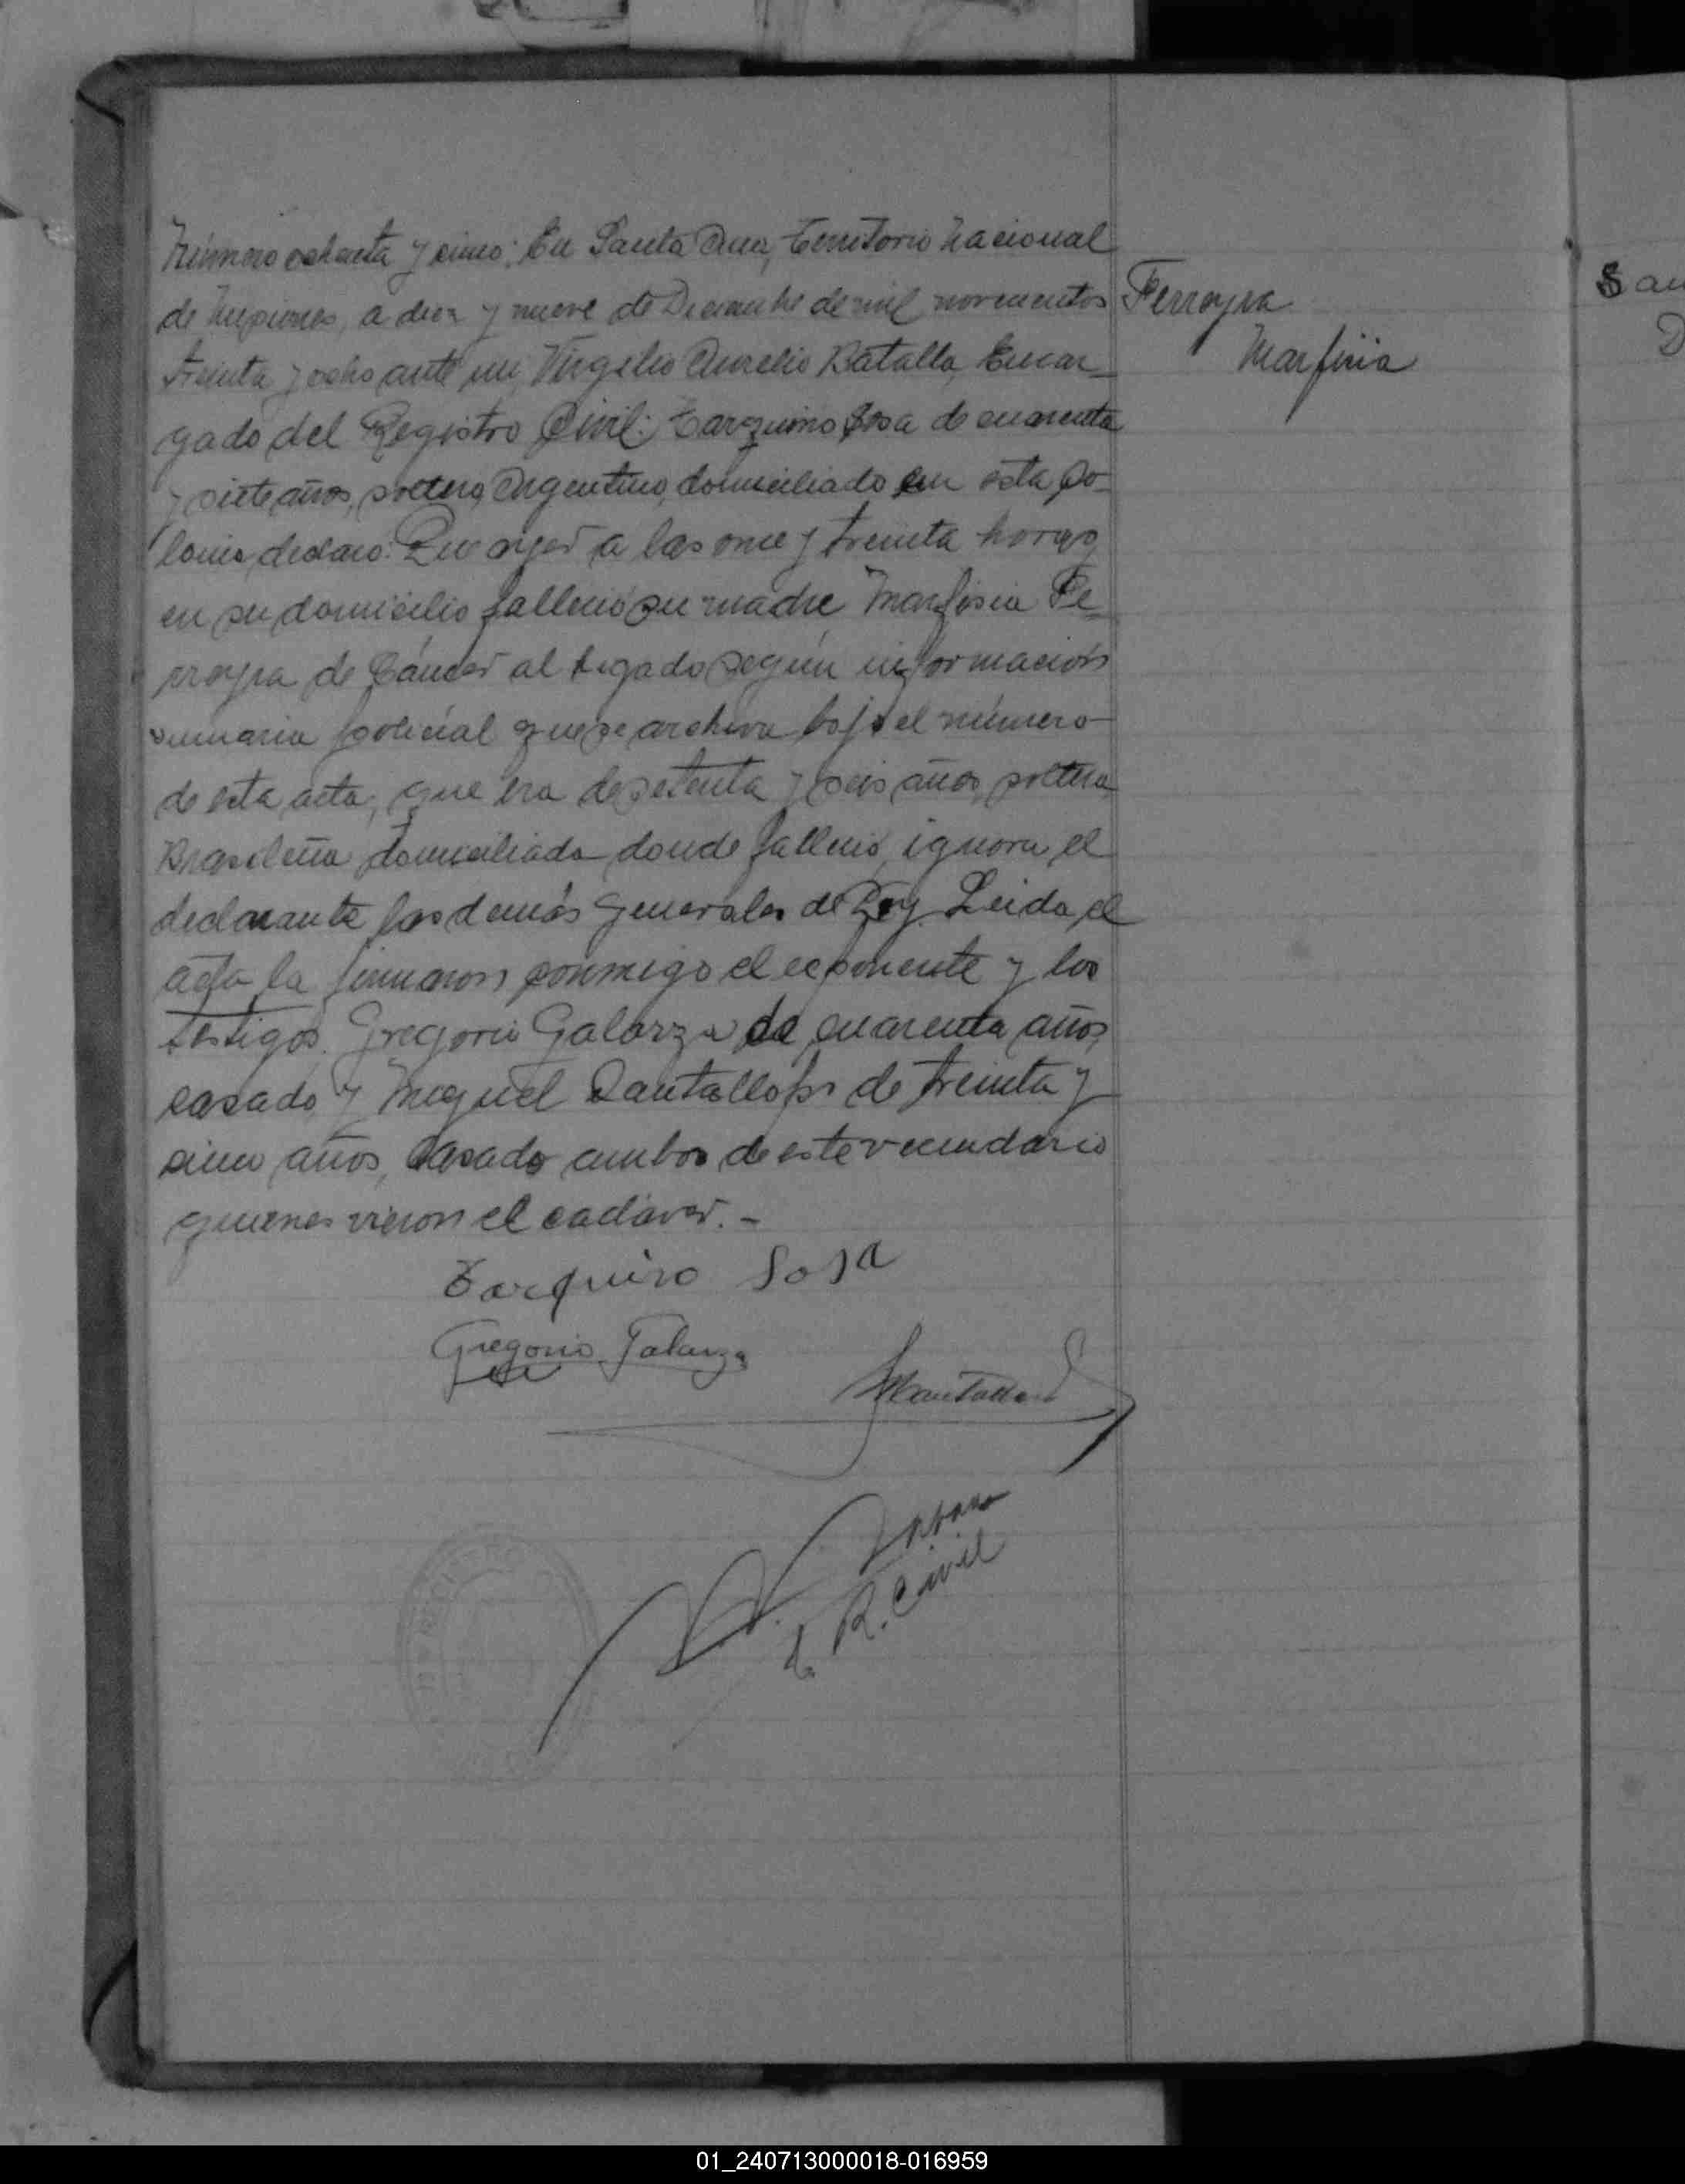 Número ochenta y cinco: En Santa Ana, Territorio Nacional
de Misiones, a diez y nueve de Diciembre de mil novecientos
treinta y ocho ante mi, Virgilio Aurelio Batalla, Encar-
gado del Registro Civil: Tarquino Sosa de cuarenta
y siete años, soltero, Argentino, domiciliado en esta Co-
lonia, declaró: Que ayer a las once y treinta horas
en su domicilio falleció su madre Marfisia Fe-
rreyra de Cáncer al higado según información
sumaria policial que se archiva bajo el número
de esta acta, que era de setenta y seis años, soltera,
Brasileña domiciliada donde falleció, ignora el
declarante las demás generales de Ley. Leida el
acta la firmaron conmigo el exponente y los
testigos. Gregorio Galarza de cuarenta años,
casado y Miguel Santallops de treinta y
cinco años, casado ambos de este vecindario
quienes vieron el cadáver.-
Ferreyra
Marfisia
Tarquino Sosa
Gregorio Galarza
E. R. Civil
San
D
01_240713000018-016959